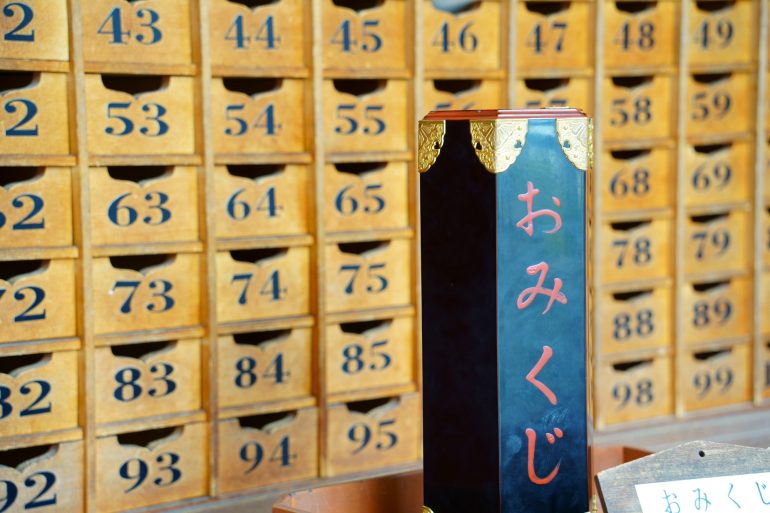 43 44 45 46 47 48 49
53 54 55 58 59
63 64 65 68 69
73 74 75 78 79
83 84 85 88 89
93 94 95 98 99
おみくじ
おみくじ